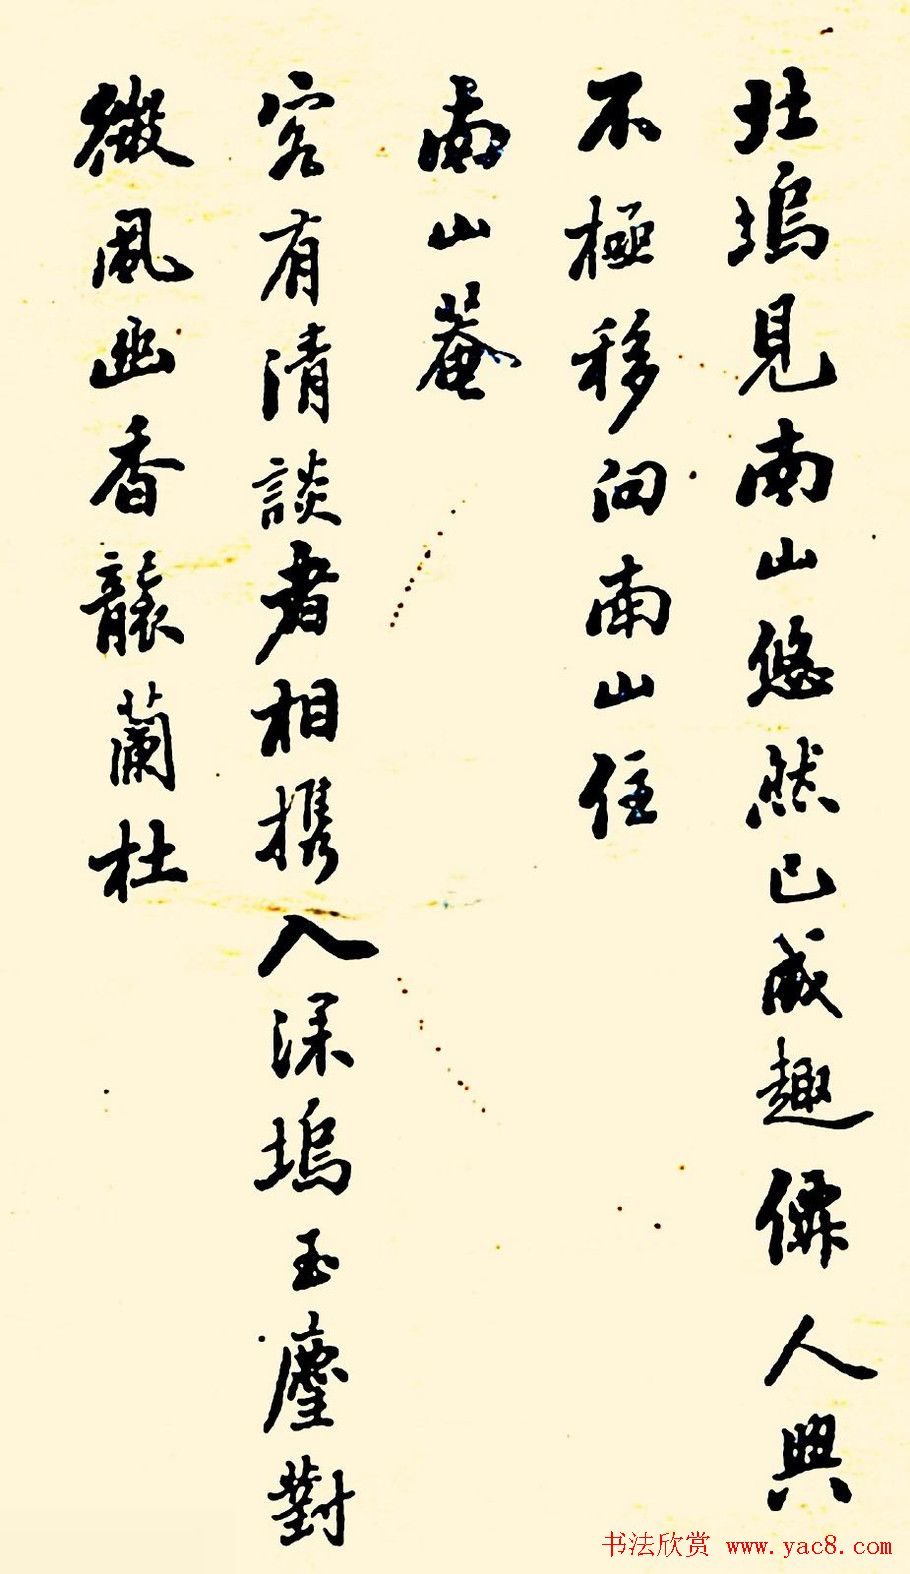 北塢見南山悠然已成趣儒人興
不極移向南山住
南山菴
客有清談者相携入深塢玉麈對
微風幽香襲蘭杜
书法欣赏 www.yac8.com